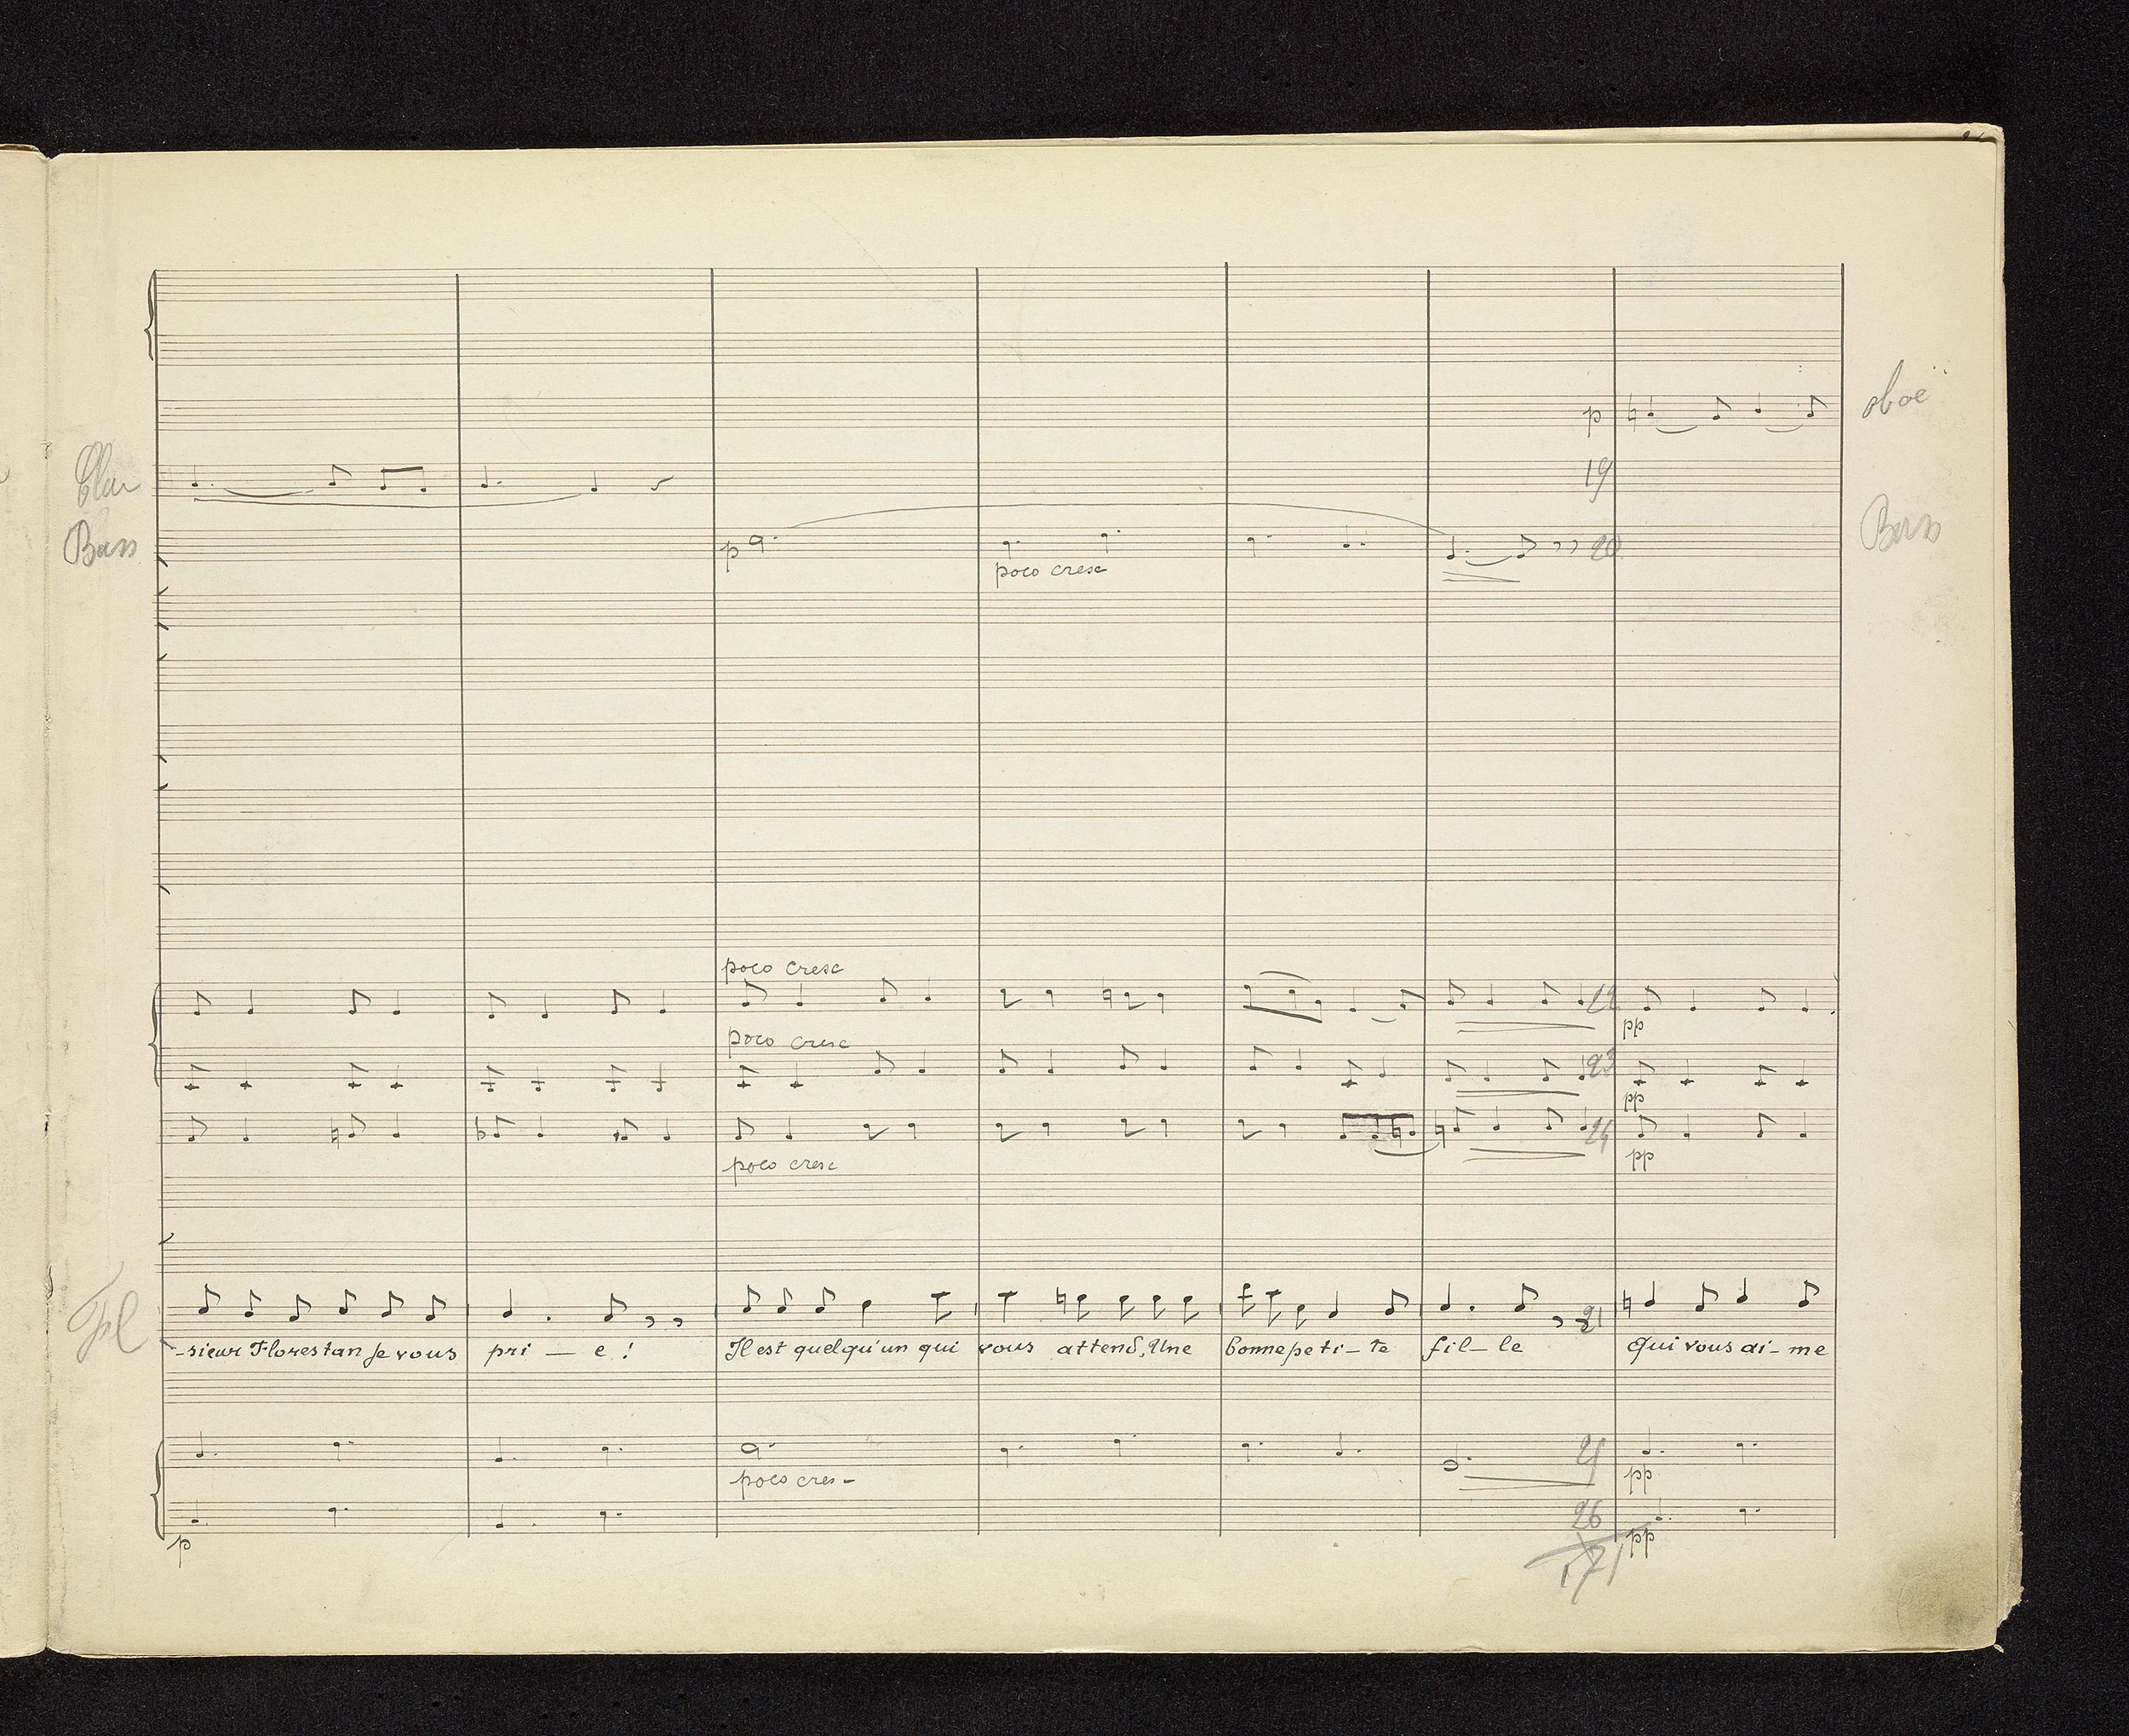 p
oboë
Clar
19
Bass
p
poco cresc
20
Bass
poco cresc
poco cresc
23
pp
pp
24
poco cresc
pp
21
-sieur Florestan Je vous pri — e ! Il est quelqu'un qui vous attend, Une bonne peti-te fil-le Qui vous ai-me
poco cres-
pp
26
p
pp
171